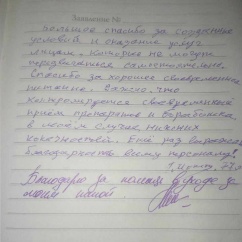 Заявление №
Большое спасибо за создание
условий и оказание услуг
лицам, которые не могут
передвигаться самостоятельно.
Спасибо за хорошее своевременное
питание. Важно, что
контролируется своевременный
прием препаратов и
в любом случае нужных
Ещё раз
благодарность всему персоналу!
Благодарю за помощь в уходе за
моей